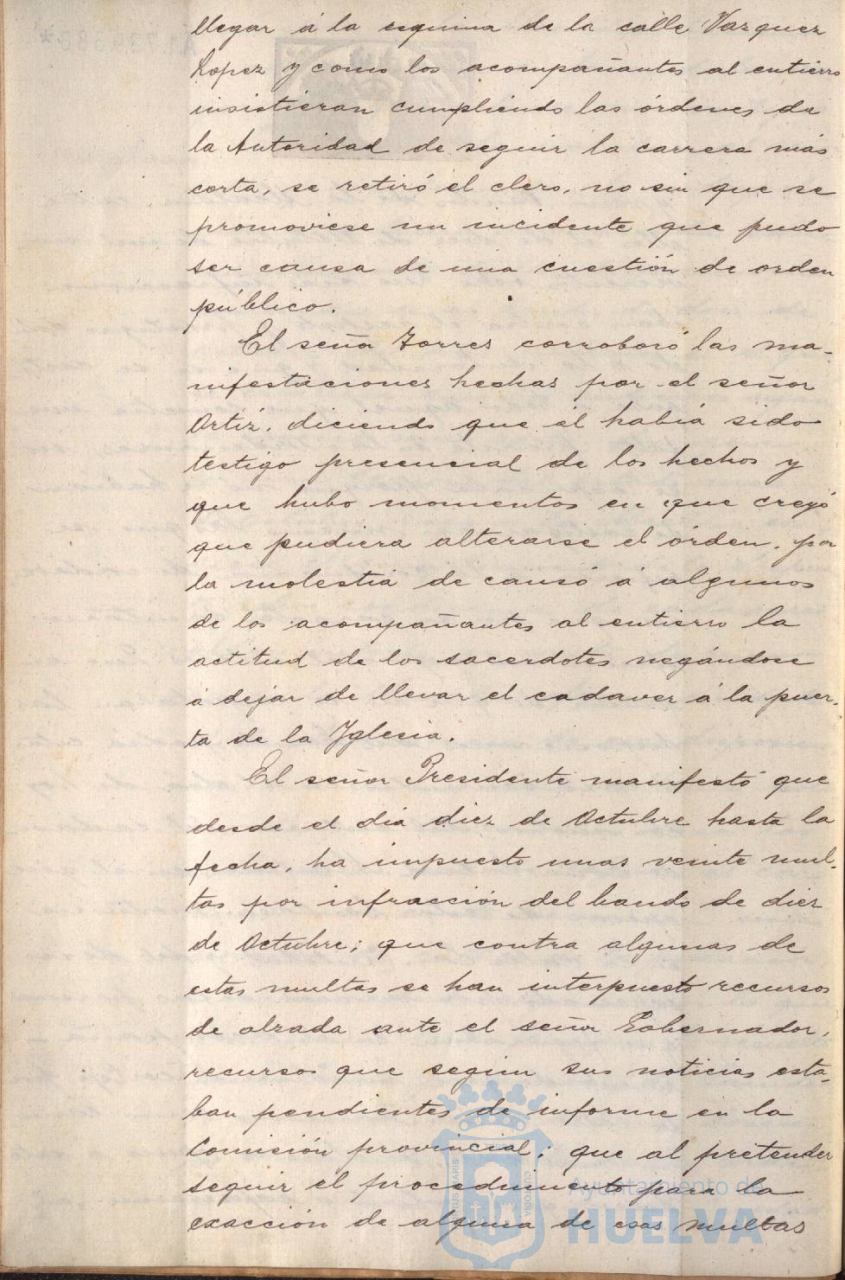 llegar á la esquina de la calle Vazquez
Lopez y como los acompañantes al entierro
insistieran cumpliendo las órdenes de
la Autoridad de seguir la carrera más
corta, se retiró el clero, no sin que se
promoviese un incidente que pudo
ser causa de una cuestión de orden
público.
El señor Torres corroboró las ma-
nifestaciones hechas por el señor
Ortiz, diciendo que él había sido
testigo presencial de los hechos y
que hubo momentos en que creyó
que pudiera alterarse el órden, por
la molestia de causó á algunos
de los acompañantes al entierro la
actitud de los sacerdotes negándose
á dejar de llevar el cadaver á la puer-
ta de la Yglesia.
El señor Presidente manifestó que
desde el día diez de Octubre hasta la
fecha, ha impuesto unas veinte mul-
tas por infracción del bando de diez
de Octubre; que contra algunas de
estas multas se han interpuesto recursos
de alzada ante el señor Gobernador,
recursos que segun sus noticias esta-
ban pendientes de informe en la
Comisión provincial; que al pretender
seguir el procedimiento para la
exacción de alguna de esas multas
Ayuntamiento de
HUELVA